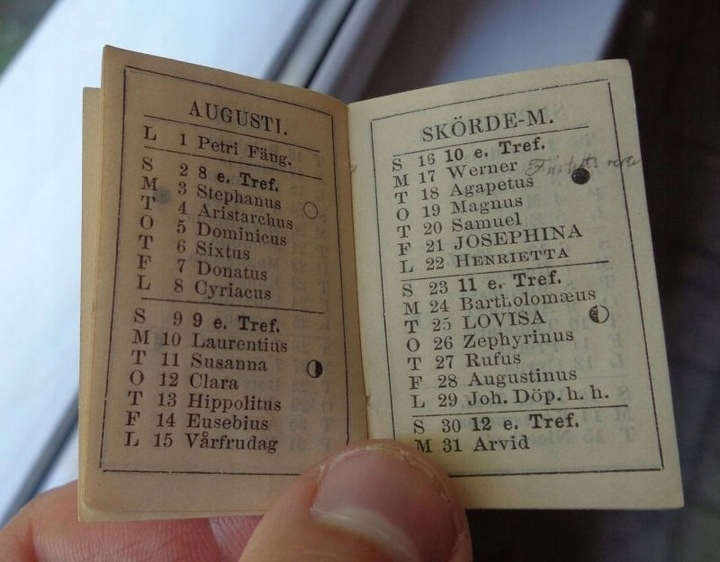 AUGUSTI.
L 1 Petri Fäng.
S 2 8 e. Tref.
M 3 Stephanus
T 4 Aristarchus
O 5 Dominicus
T 6 Sixtus
F 7 Donatus
L 8 Cyriacus
S 9 9 e. Tref.
M 10 Laurentius
T 11 Susanna
O 12 Clara
T 13 Hippolitus
F 14 Eusebius
L 15 Vårfrudag
SKÖRDE-M.
S 16 10 e. Tref.
M 17 Werner
T 18 Agapetus
O 19 Magnus
T 20 Samuel
F 21 JOSEPHINA
L 22 HENRIETTA
S 23 11 e. Tref.
M 24 Bartholomæus
T 25 LOVISA
O 26 Zephyrinus
T 27 Rufus
F 28 Augustinus
L 29 Joh. Döp. h. h.
S 30 12 e. Tref.
M 31 Arvid